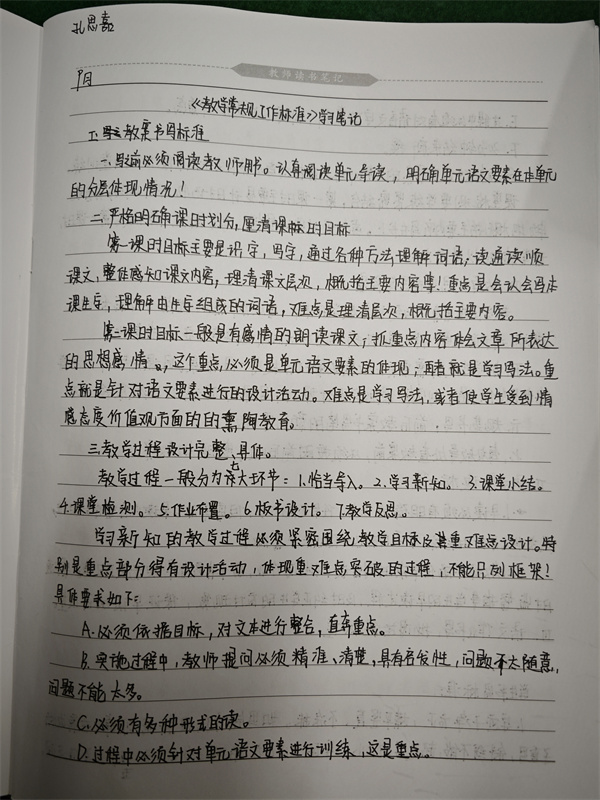 孔思嘉
9月
教师读书笔记
《教学常规工作标准》学习笔记
1.写教案书目标准
一、写前必须阅读教师用书。认真阅读单元导读,明确单元语文要素在本单元
的分层体现情况!
二.严格明确课时划分,厘清课时目标
第一课时目标主要是识字,写字,通过各种方法理解词语,读通读顺
课文,整体感知课文内容,理清课文层次,概括主要内容等!重点是会认会写本
课生字,理解由生字组成的词语,难点是理清层次,概括主要内容。
第二课时目标一般是有感情的朗读课文;抓重点内容体会文章所表达
的思想感情。这个重点,必须是单元语文要素的体现;再者就是学习写法。重
点就是针对语文要素进行的设计活动。难点是学习写法,或者使学生受到情
感态度价值观方面的的熏陶教育。
三.教学过程设计完整、具体。
教学过程一般分为七大环节:1.恰当导入。2.学习新知。3.课堂小结。
4.课堂检测。5.作业布置。6.板书设计。7.教学反思。
学习新知的教学过程必须紧密围绕教学目标及其重难点设计。特
别是重点部分得有设计活动,体现重难点突破的过程,不能只列框架!
具体要求如下:
A.必须依据目标,对文本进行整合,直奔重点。
B.实施过程中,教师提问必须精准、清楚,具有启发性,问题不太随意,
问题不能太多。
C.必须有多种形式的读。
D.过程中必须针对单元语文要素进行训练,这是重点。